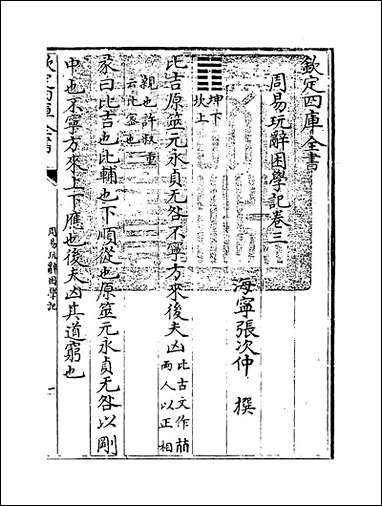 欽定四庫全書
周易玩辭困學記卷三
海寧張次仲 撰
坤下
坎上
比吉原筮元永貞无咎不寧方來後夫凶比古文作
兩人以正相
親也許叔重
云比密也
彖曰比吉也比輔也下順從也原筮元永貞无咎以剛
中也不寧方來上下應也後夫凶其道窮也
欽定四庫全書
周易玩辭困學記
一